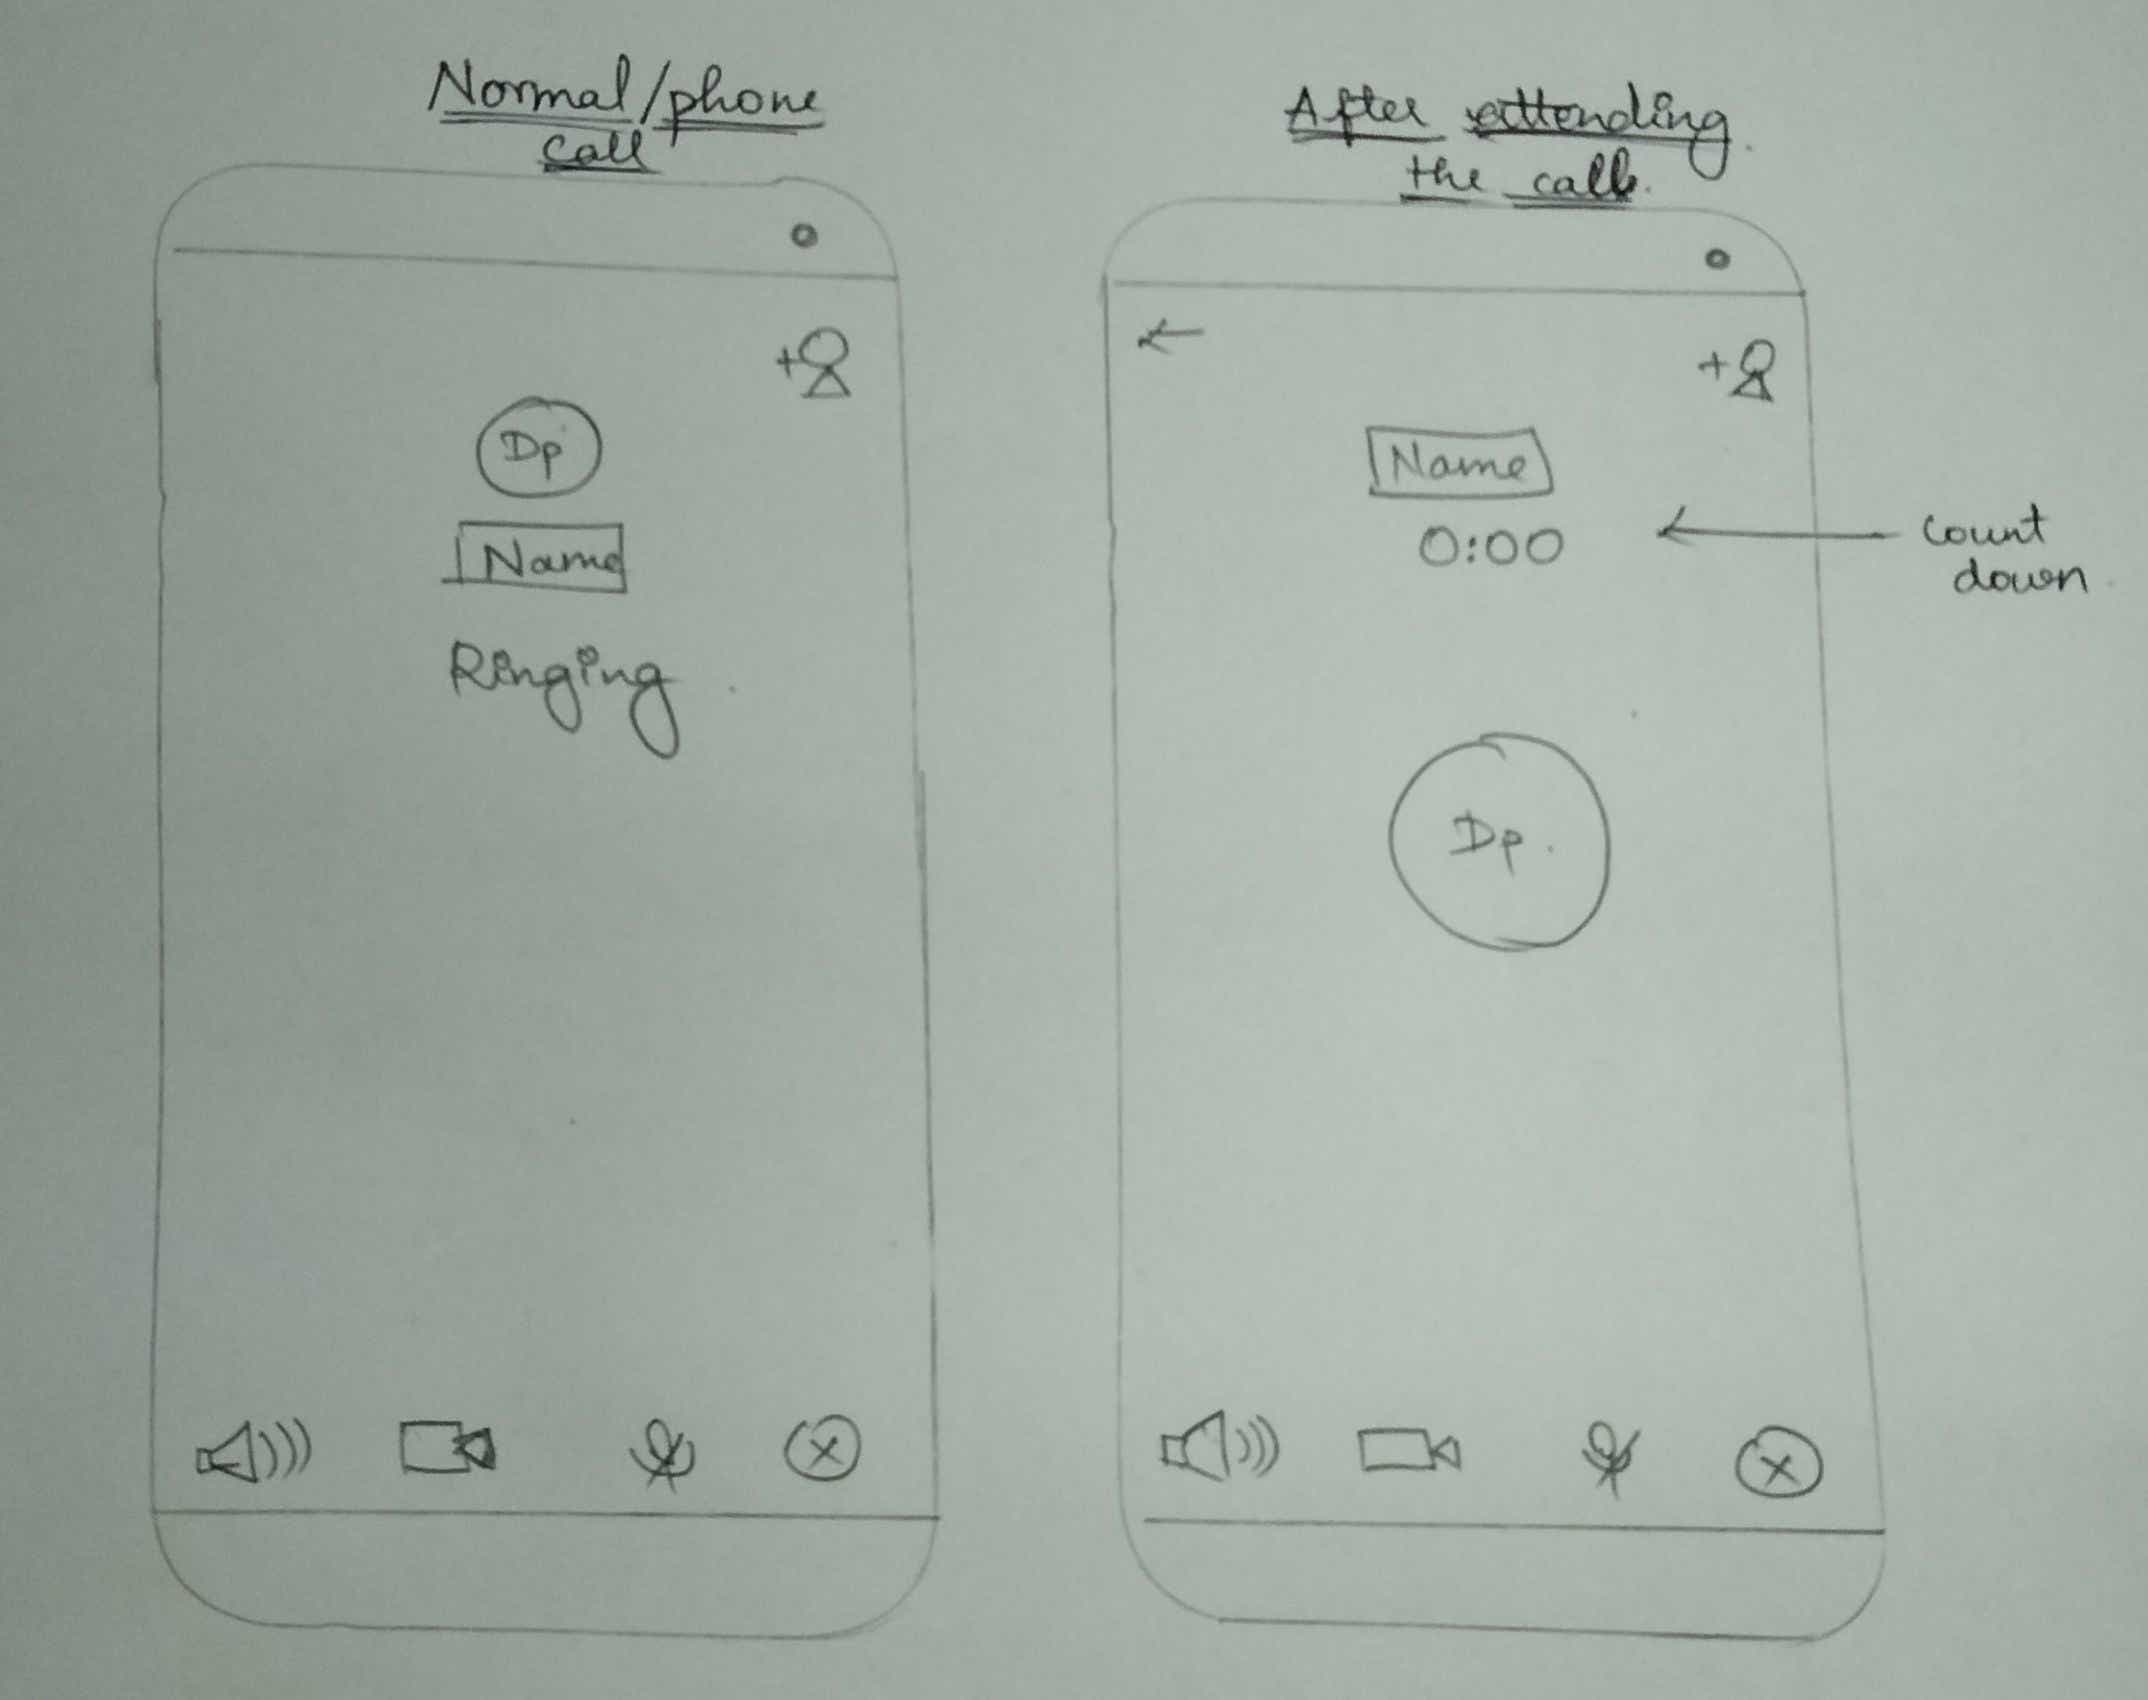 Normal/phone
call
Dp
Name
Ringing
After attending
the call.
Name
0:00
count
down
Dp.